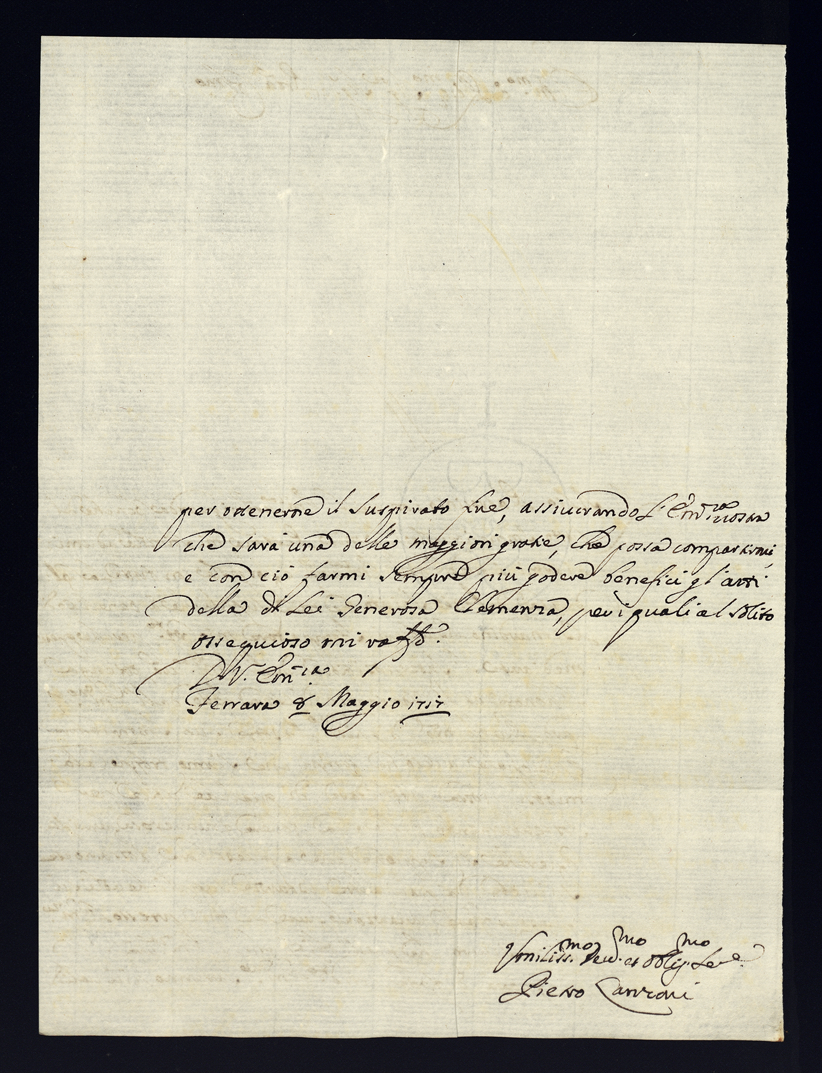 per otenerne il suspirato fine, assicurando L'Em.za vostra
che sarà una delle maggiori grazie, che possa compartirmi,
e con ciò farmi sempre più godere benefici gl'atti
della di Lei Generosa Clemenza, per i quali al solito
ossequioso mi raff.o
D. V. Em.za
Ferrara 8 Maggio 1717
Umiliss.mo Dev.mo et Oblig.mo Ser.e
Pietro Canzoni